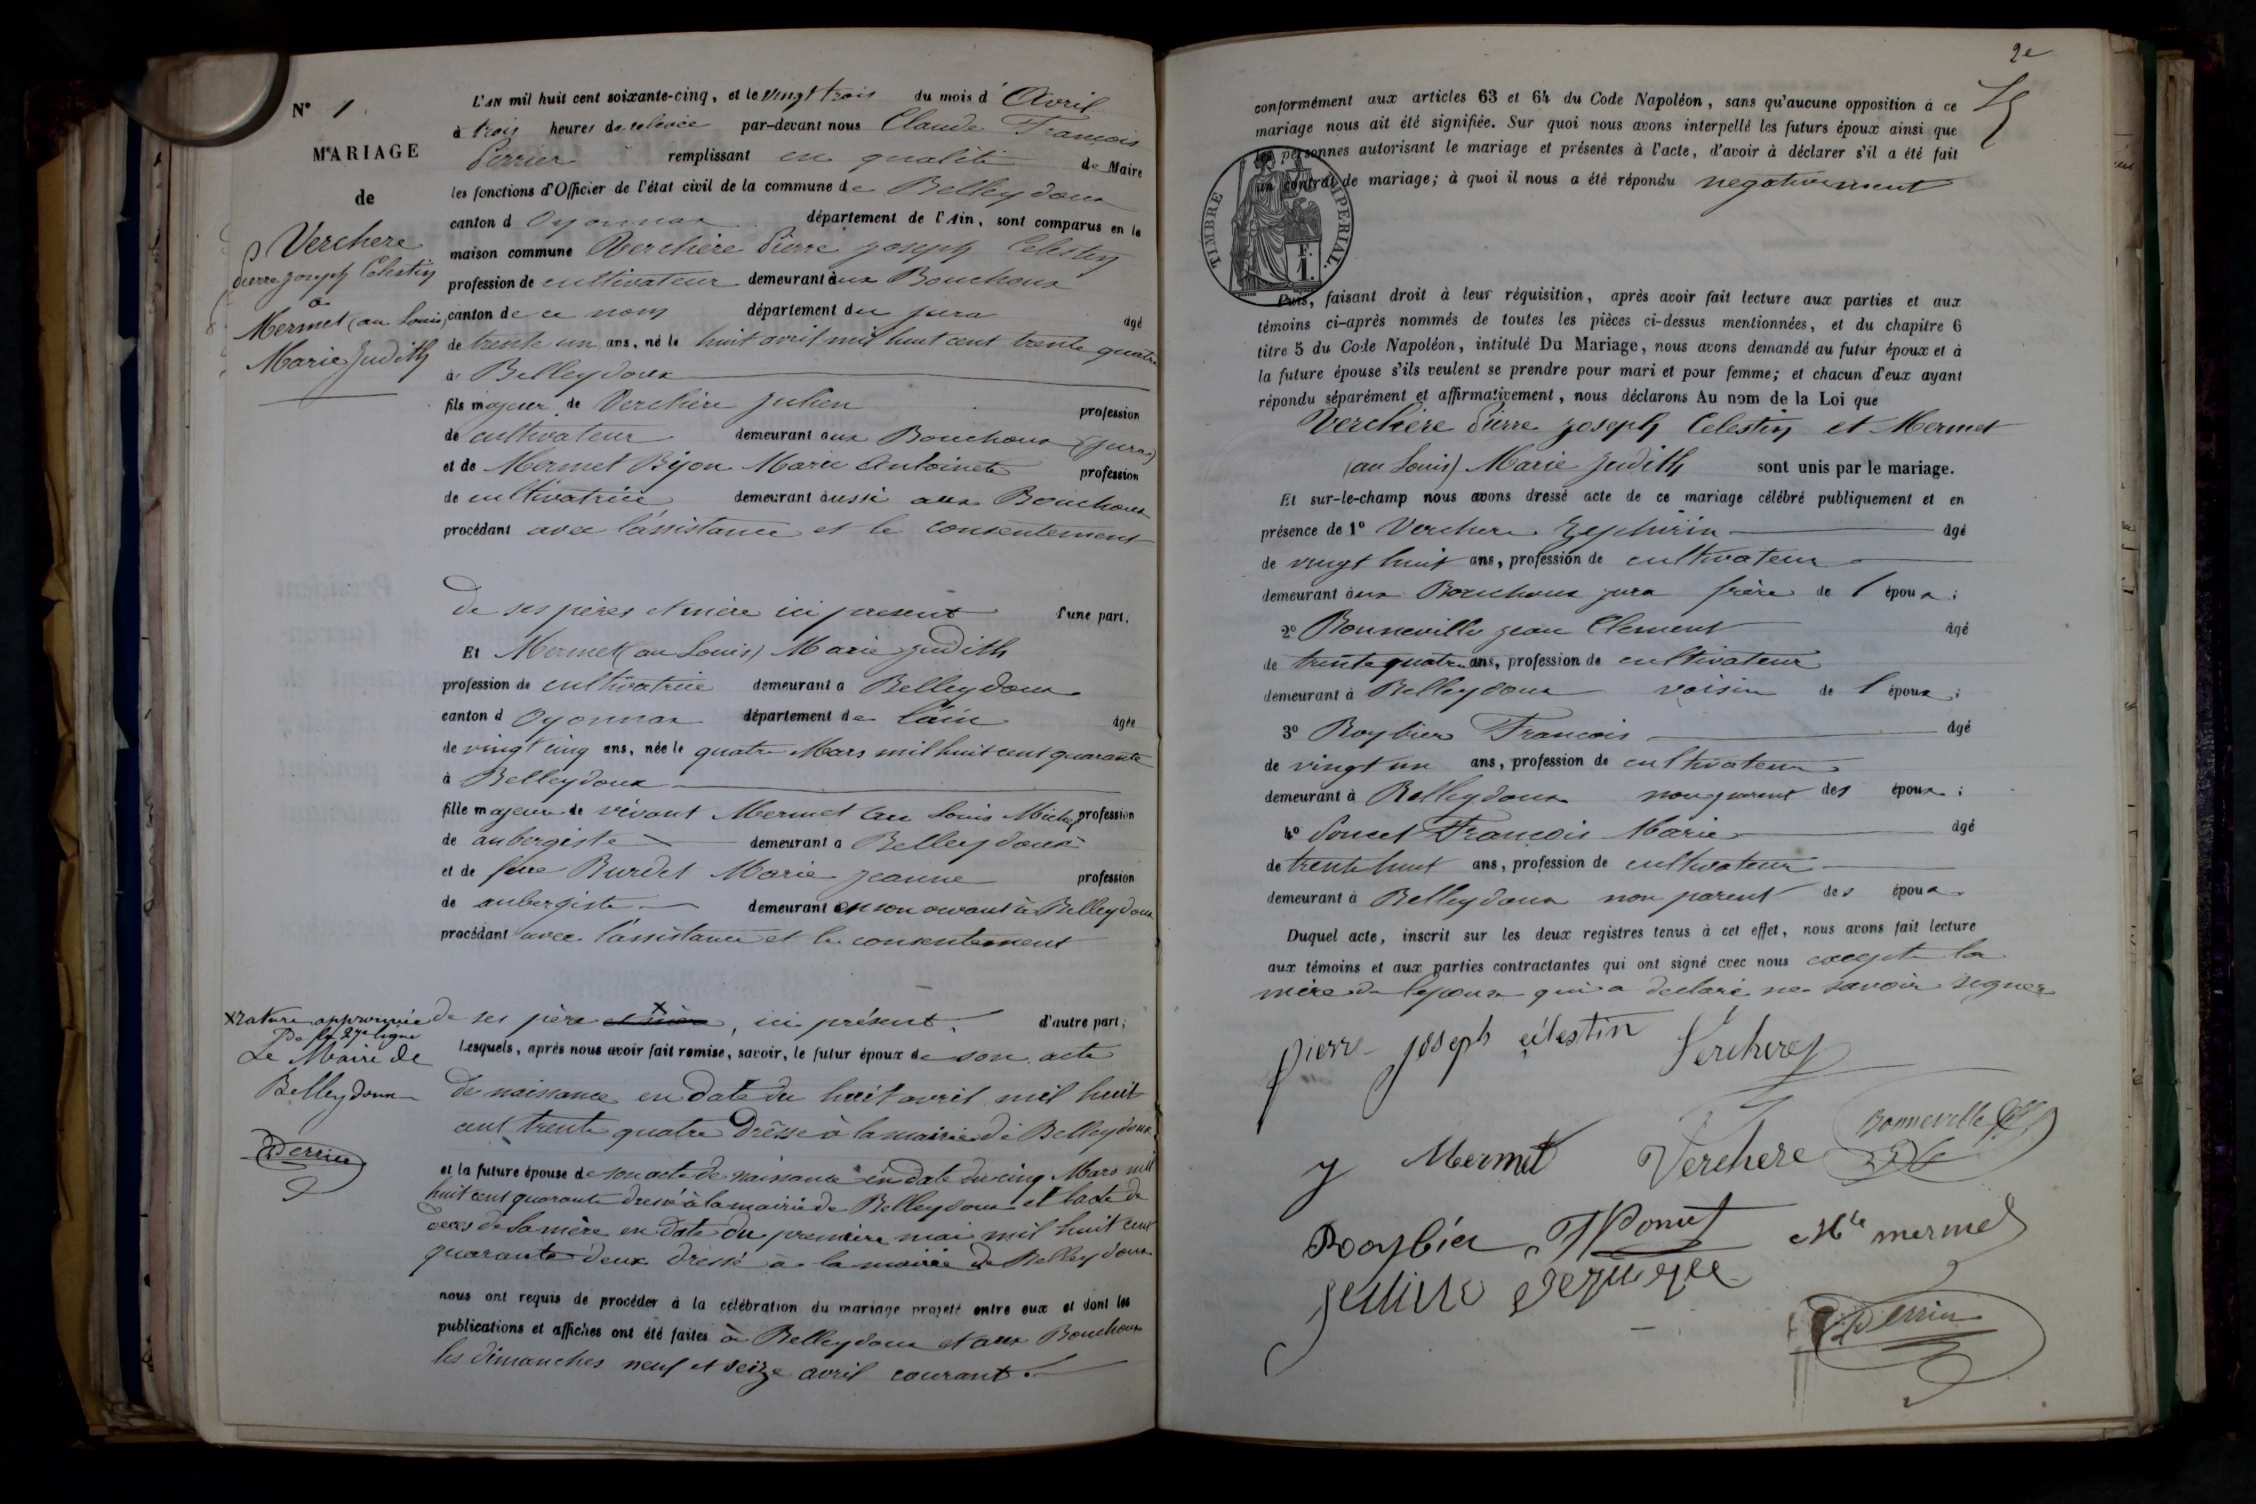 N° 1
MARIAGE
de
Verchere
pierre joseph Celestin
a
Mermet (au Louis)
Marie Judith
L'AN mil huit cent soixante-cinq, et le vingt trois du mois d'Avril
à trois heures de relevée par-devant nous Claude François
Perrier remplissant en qualité de Maire
les fonctions d'Officier de l'état civil de la commune de Belleydoux
canton d'Oyonnax département de l'Ain, sont comparus en la
maison commune Verchère Pierre joseph Celestin
profession de cultivateur demeurant aux Bouchoux
canton de ce nom département du jura âgé
de trente un ans, né le huit avril mil huit cent trente quatre
à Belleydoux
fils majeur de Verchère julien profession
de cultivateur demeurant aux Bouchoux (jura)
et de Mermet Bijon Marie Antoinete profession
de cultivatrice demeurant aussi aux Bouchoux
procédant avec l'assistance et le consentement
de ses pères et mère ici present d'une part.
Et Mermet (au Louis) Marie judith
profession de cultivatrice demeurant à Belleydoux
canton d'Oyonnax département de l'ain âgée
de vingt cinq ans, née le quatre Mars mil huit cent quarante
à Belleydoux
fille majeure de vivant Mermet au Louis Michel profession
de aubergiste demeurant à Belleydoux
et de feue Burdet Marie jeanne profession
de aubergiste demeurant en son vivant à Belleydoux
procédant avec l'assistance et le consentement
de ses père et mère, ici présent, d'autre part;
X rature approuvée
de la 27e ligne
Le Maire de
Belleydoux
Perrier
Lesquels, après nous avoir fait remise, savoir, le futur époux de son acte
de naissance en date du huit avril mil huit
cent trente quatre dressé à la mairie de Belleydoux
et la future épouse de son acte de naissance en date du cinq Mars mil
huit cent quarante dressé à la mairie de Belleydoux et l'acte de
décès de sa mère en date du premiere mai mil huit cent
quarante deux dressé à la mairie de Belleydoux
nous ont requis de procéder à la célébration du mariage projeté entre eux et dont les
publications et affiches ont été faites à Belleydoux et aux Bouchoux
les dimanches neuf et seize avril courant.
2e
conformément aux articles 63 et 64 du Code Napoléon, sans qu'aucune opposition à ce
mariage nous ait été signifiée. Sur quoi nous avons interpellé les futurs époux ainsi que
les personnes autorisant le mariage et présentes à l'acte, d'avoir à déclarer s'il a été fait
un contrat de mariage; à quoi il nous a été répondu negativement
TIMBRE IMPERIAL.
F.
1.
Puis, faisant droit à leur réquisition, après avoir fait lecture aux parties et aux
témoins ci-après nommés de toutes les pièces ci-dessus mentionnées, et du chapitre 6
titre 5 du Code Napoléon, intitulé Du Mariage, nous avons demandé au futur époux et à
la future épouse s'ils veulent se prendre pour mari et pour femme; et chacun d'eux ayant
répondu séparément et affirmativement, nous déclarons Au nom de la Loi que
Verchère Pierre joseph Celestin et Mermet
(au Louis) Marie judith sont unis par le mariage.
Et sur-le-champ nous avons dressé acte de ce mariage célébré publiquement et en
présence de 1° Verchere Zephirin âgé
de vingt huit ans, profession de cultivateur
demeurant aux Bouchoux jura frère de l'époux;
2° Bonneville jean Clement âgé
de trente quatre ans, profession de cultivateur
demeurant à Belleydoux voisin de l'époux;
3° Roybier François âgé
de vingt un ans, profession de cultivateur
demeurant à Belleydoux non parent des époux;
4° Poncet François Marie âgé
de trente huit ans, profession de cultivateur
demeurant à Belleydoux non parent des époux.
Duquel acte, inscrit sur les deux registres tenus à cet effet, nous avons fait lecture
aux témoins et aux parties contractantes qui ont signé avec nous excepté la
mère de l'epoux qui a declaré ne savoir signer
pierre joseph célestin Verchere
J Mermet Verchere Bonneville
Roybier F Poncet Mle mermet
Perrier